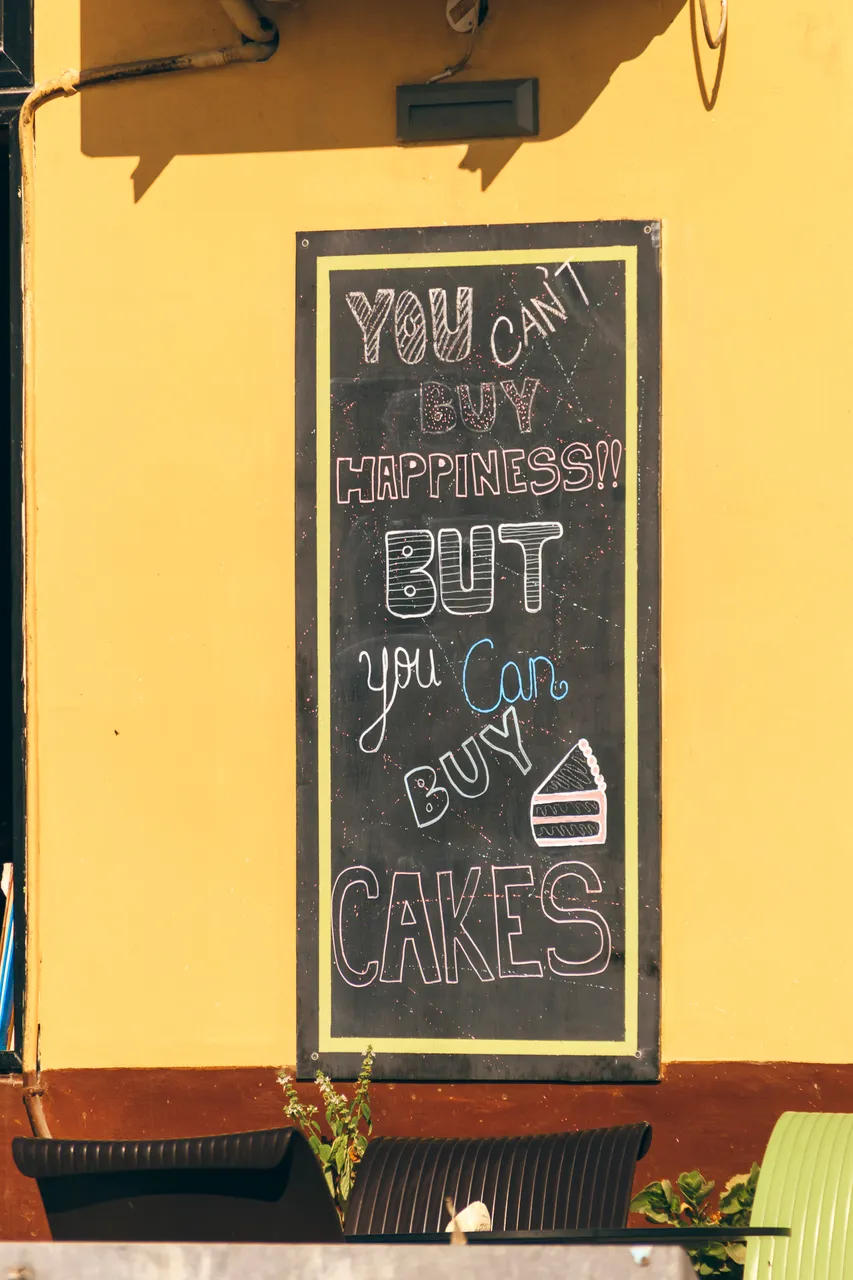 YOU CAN'T
BUY
HAPPINESS!!
BUT
you Can
BUY
CAKES